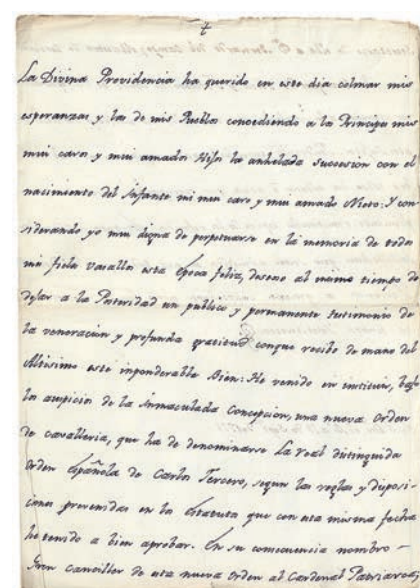 La Divina Providencia ha querido en este dia colmar mis
esperanzas y las de mis Pueblos concediendo a los Principes mis
mui caros y mui amados Hijos la anhelada succesion con el
nacimiento del Infante mi mui caro y mui amado Nieto: Y con
siderando yo mui digna de perpetuarse en la memoria de todos
mis fieles vasallos esta epoca feliz, deseno al mismo tiempo de
dejar a la Posteridad un publico y permanente testimonio de
la veneracion y profunda gratitud conque recibo de mano del
Altisimo este imponderable Bien: He venido en instituir, bajo
los auspicios de la Inmaculada Concepcion, una nueva Orden
de cavalleria, que ha de denominarse La real distinguida
Orden Española de Carlos Tercero, segun las reglas y disposi-
ciones prevenidas en los Estatutos que con esta misma fecha
he tenido a bien aprobar. En su consecuencia nombro —
Gran Canciller de esta nueva Orden al Cardenal Patriarca